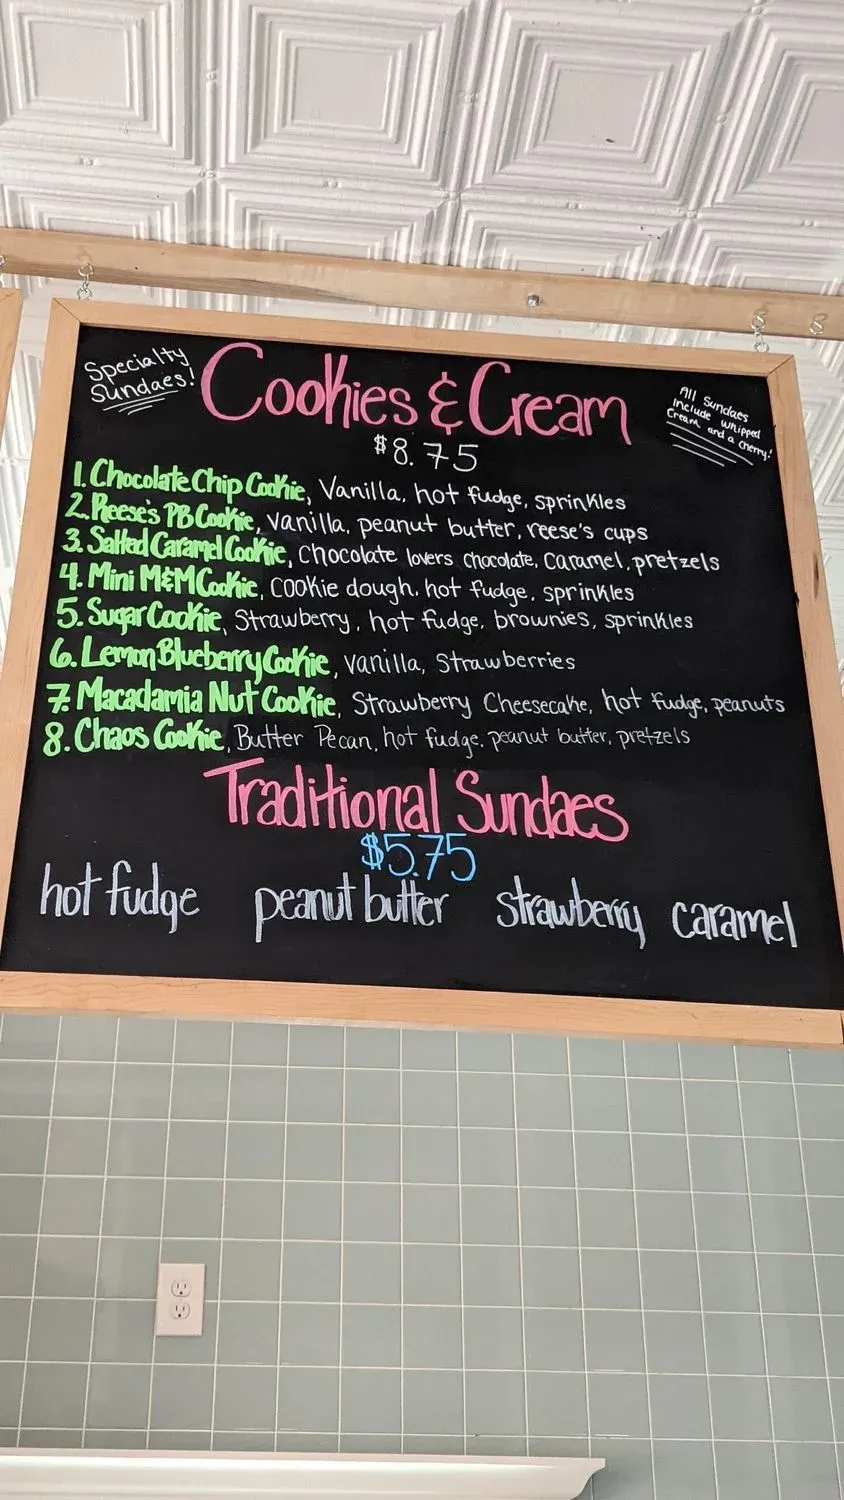 Specialty
Sundaes!
Cookies & Cream
All Sundaes
include whipped
cream and a cherry!
$8.75
1. Chocolate Chip Cookie, Vanilla, hot fudge, sprinkles
2. Reese's PB Cookie, vanilla, peanut butter, reese's cups
3. Salted Caramel Cookie, Chocolate lovers chocolate, Caramel, pretzels
4. Mini M&M Cookie, cookie dough, hot fudge, sprinkles
5. Sugar Cookie, Strawberry, hot fudge, brownies, sprinkles
6. Lemon Blueberry Cookie, vanilla, Strawberries
7. Macadamia Nut Cookie, Strawberry Cheesecake, hot fudge, peanuts
8. Chaos Cookie, Butter Pecan, hot fudge, peanut butter, pretzels
Traditional Sundaes
$5.75
hot fudge peanut butter strawberry caramel